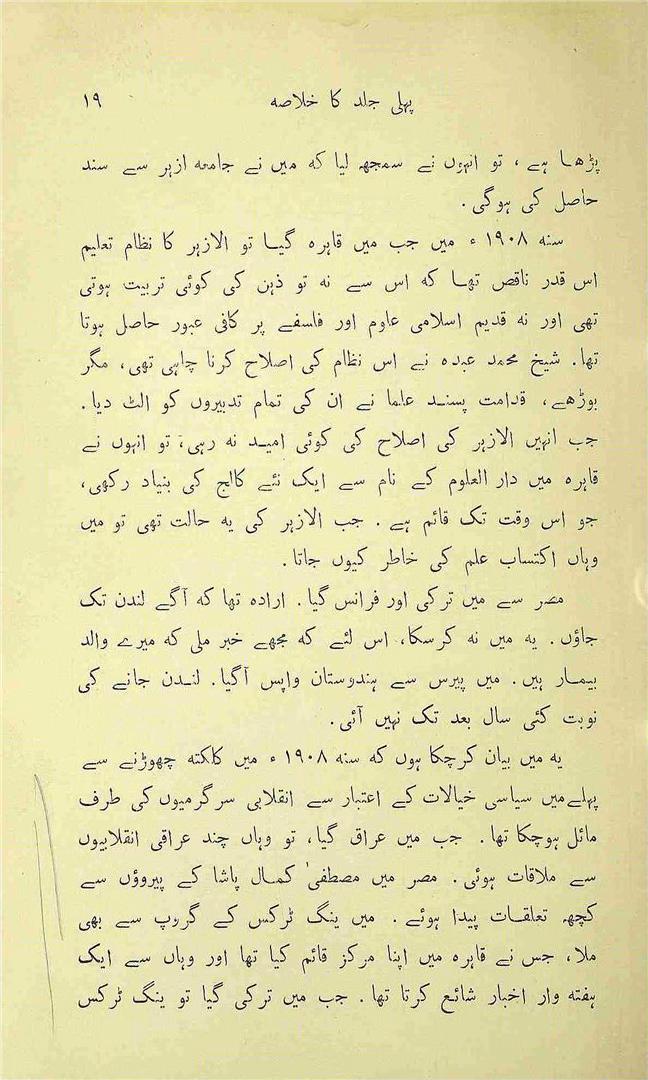 پہلی جلد کا خلاصہ ۱۹
پڑھا ہے ، تو انہوں نے سمجھ لیا کہ میں نے جامعہ ازہر سے سند
حاصل کی ہوگی .
سنہ ۱۹۰۸ ء میں جب میں قاہرہ گیا تو الازہر کا نظام تعلیم
اس قدر ناقص تھا کہ اس سے نہ تو ذہن کی کوئی تربیت ہوتی
تھی اور نہ قدیم اسلامی علوم اور فلسفے پر کافی عبور حاصل ہوتا
تھا . شیخ محمد عبدہ نے اس نظام کی اصلاح کرنا چاہی تھی ، مگر
بوڑھے ، قدامت پسند علما نے ان کی تمام تدبیروں کو الٹ دیا .
جب انہیں الازہر کی اصلاح کی کوئی امید نہ رہی ، تو انہوں نے
قاہرہ میں دار العلوم کے نام سے ایک نئے کالج کی بنیاد رکھی ،
جو اس وقت تک قائم ہے . جب الازہر کی یہ حالت تھی تو میں
وہاں اکتساب علم کی خاطر کیوں جاتا .
مصر سے میں ترکی اور فرانس گیا . ارادہ تھا کہ آگے لندن تک
جاؤں . یہ میں نہ کرسکا ، اس لئے کہ مجھے خبر ملی کہ میرے والد
بیمار ہیں . میں پیرس سے ہندوستان واپس آگیا . لندن جانے کی
نوبت کئی سال بعد تک نہیں آئی .
یہ میں بیان کرچکا ہوں کہ سنہ ۱۹۰۸ ء میں کلکتہ چھوڑنے سے
پہلے میں سیاسی خیالات کے اعتبار سے انقلابی سرگرمیوں کی طرف
مائل ہوچکا تھا . جب میں عراق گیا ، تو وہاں چند عراقی انقلابیوں
سے ملاقات ہوئی . مصر میں مصطفیٰ کمال پاشا کے پیروؤں سے
کچھ تعلقات پیدا ہوئے . میں ینگ ٹرکس کے گروپ سے بھی
ملا ، جس نے قاہرہ میں اپنا مرکز قائم کیا تھا اور وہاں سے ایک
ہفتہ وار اخبار شائع کرتا تھا . جب میں ترکی گیا تو ینگ ٹرکس